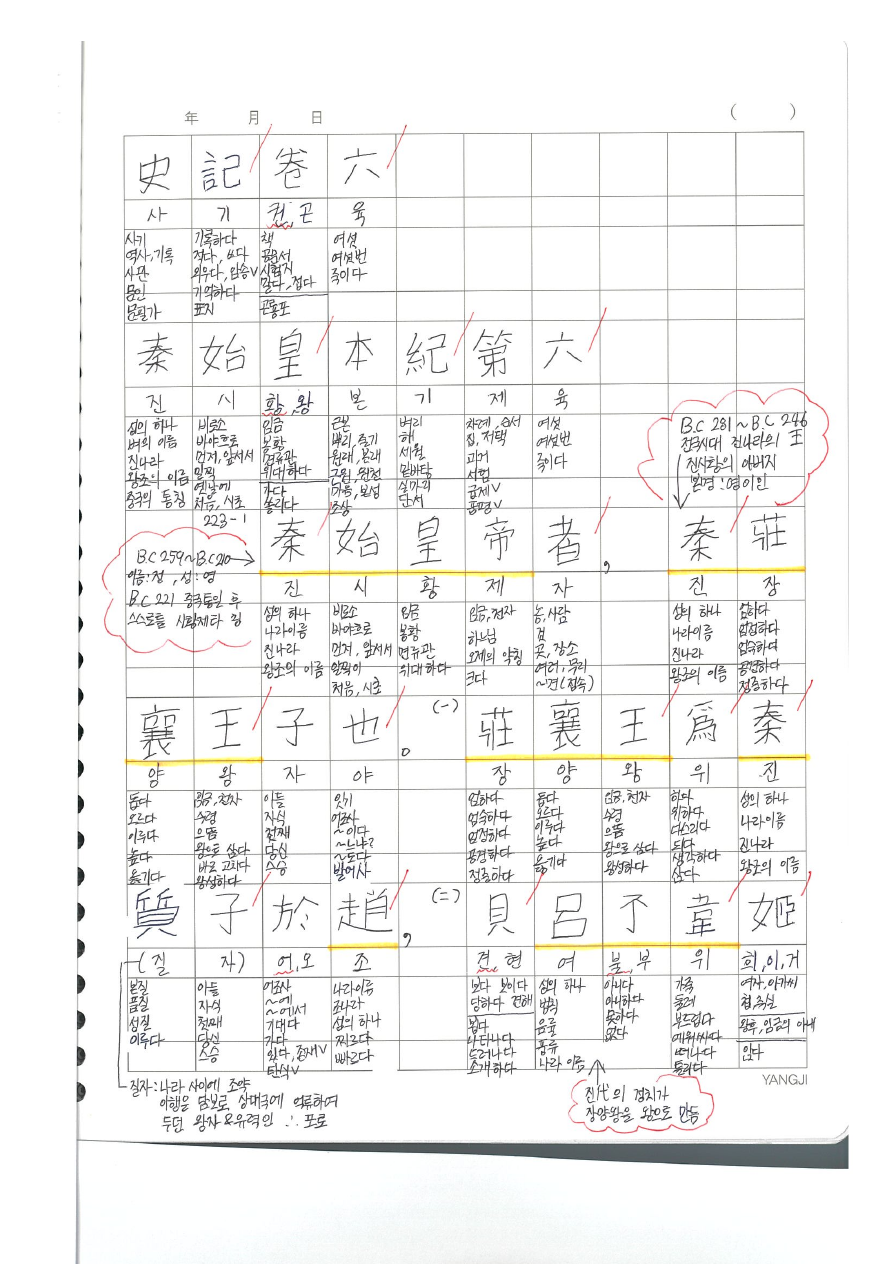 年 月 日 ( )
史 記 卷 六
사 기 권,곤 육
사기 기록하다 책 여섯
역사,기록 적다, 쓰다 공문서 여섯번
사관 외우다, 암송∨ 시험지 죽이다
문인 기억하다 말다, 접다
문필가 표지 곤룡포
秦 始 皇 本 紀 第 六
진 시 황,왕 본 기 제 육
성의 하나 비로소 임금 근본 벼리 차례, 순서 여섯
벼의 이름 바야흐로 봉황 뿌리, 줄기 해 집, 저택 여섯번
진나라 먼저, 앞서서 면류관 원래, 본래 세월 과거 죽이다
왕조의 이름 일찍 위대하다 근원, 원천 밑바탕 시험
중국의 통칭 옛날에 가다 마음, 본성 실마리 급제∨
처음, 시초 쏠리다 조상 단서 품평∨
B.C 281 ~ B.C 246
전국시대 진나라의 王
진시황의 아버지
본명 : 영이인
223-1
秦 始 皇 帝 者 , 秦 莊
B.C 259~B.C 210
이름:정, 성:영
B.C 221 중국통일 후
스스로를 시황제라 칭
진 시 황 제 자 진 장
성의 하나 비로소 임금 임금,천자 놈,사람 성의 하나 엄하다
나라이름 바야흐로 봉황 하느님 것 나라이름 엄정하다
진나라 먼저, 앞서서 면류관 오제의 약칭 곳, 장소 진나라 엄숙하다
왕조의 이름 일찍이 위대하다 크다 여러, 무리 왕조의 이름 공경하다
처음, 시초 ~면 (접속) 정중하다
襄 王 子 也 。 (一) 莊 襄 王 爲 秦
양 왕 자 야 장 양 왕 위 진
돕다 임금,천자 아들 잇기 엄하다 돕다 임금,천자 하다 성의 하나
오르다 수령 자식 어조사 엄숙하다 오르다 수령 위하다 나라이름
이루다 으뜸 첫째 ~이다 엄정하다 이루다 으뜸 다스리다 진나라
높다 왕으로 삼다 당신 ~느냐? 공경하다 높다 왕으로 삼다 되다 왕조의 이름
옮기다 바로 고치다 스승 ~도다 정중하다 옮기다 왕성하다 생각하다
왕성하다 발어사 삼다
質 子 於 趙 , (二) 見 呂 不 韋 姬
(질 자) 어,오 조 견,현 여 불,부 위 희,이,거
본질 아들 어조사 나라이름 보다 보이다 성의 하나 아니다 가죽 여자,아가씨
품질 자식 ~에 조나라 당하다 견해 법칙 아니하다 둘레 첩,측실
성질 첫째 ~에서 성의 하나 뵙다 음률 못하다 부드럽다 왕후, 임금의 아내
이루다 당신 기대다 찌르다 나타나다 풍류 없다 에워싸다 있다
스승 가다 빠르다 드러나다 나라 이름 떠나다
있다, 존재∨ 소개하다 틀리다
탄식∨
YANGJI
질자:나라 사이에 조약
이행을 담보로 상대국에 억류하여
두던 왕자&유력인 ∴ 포로
진代의 정치가
장양왕을 왕으로 만듦